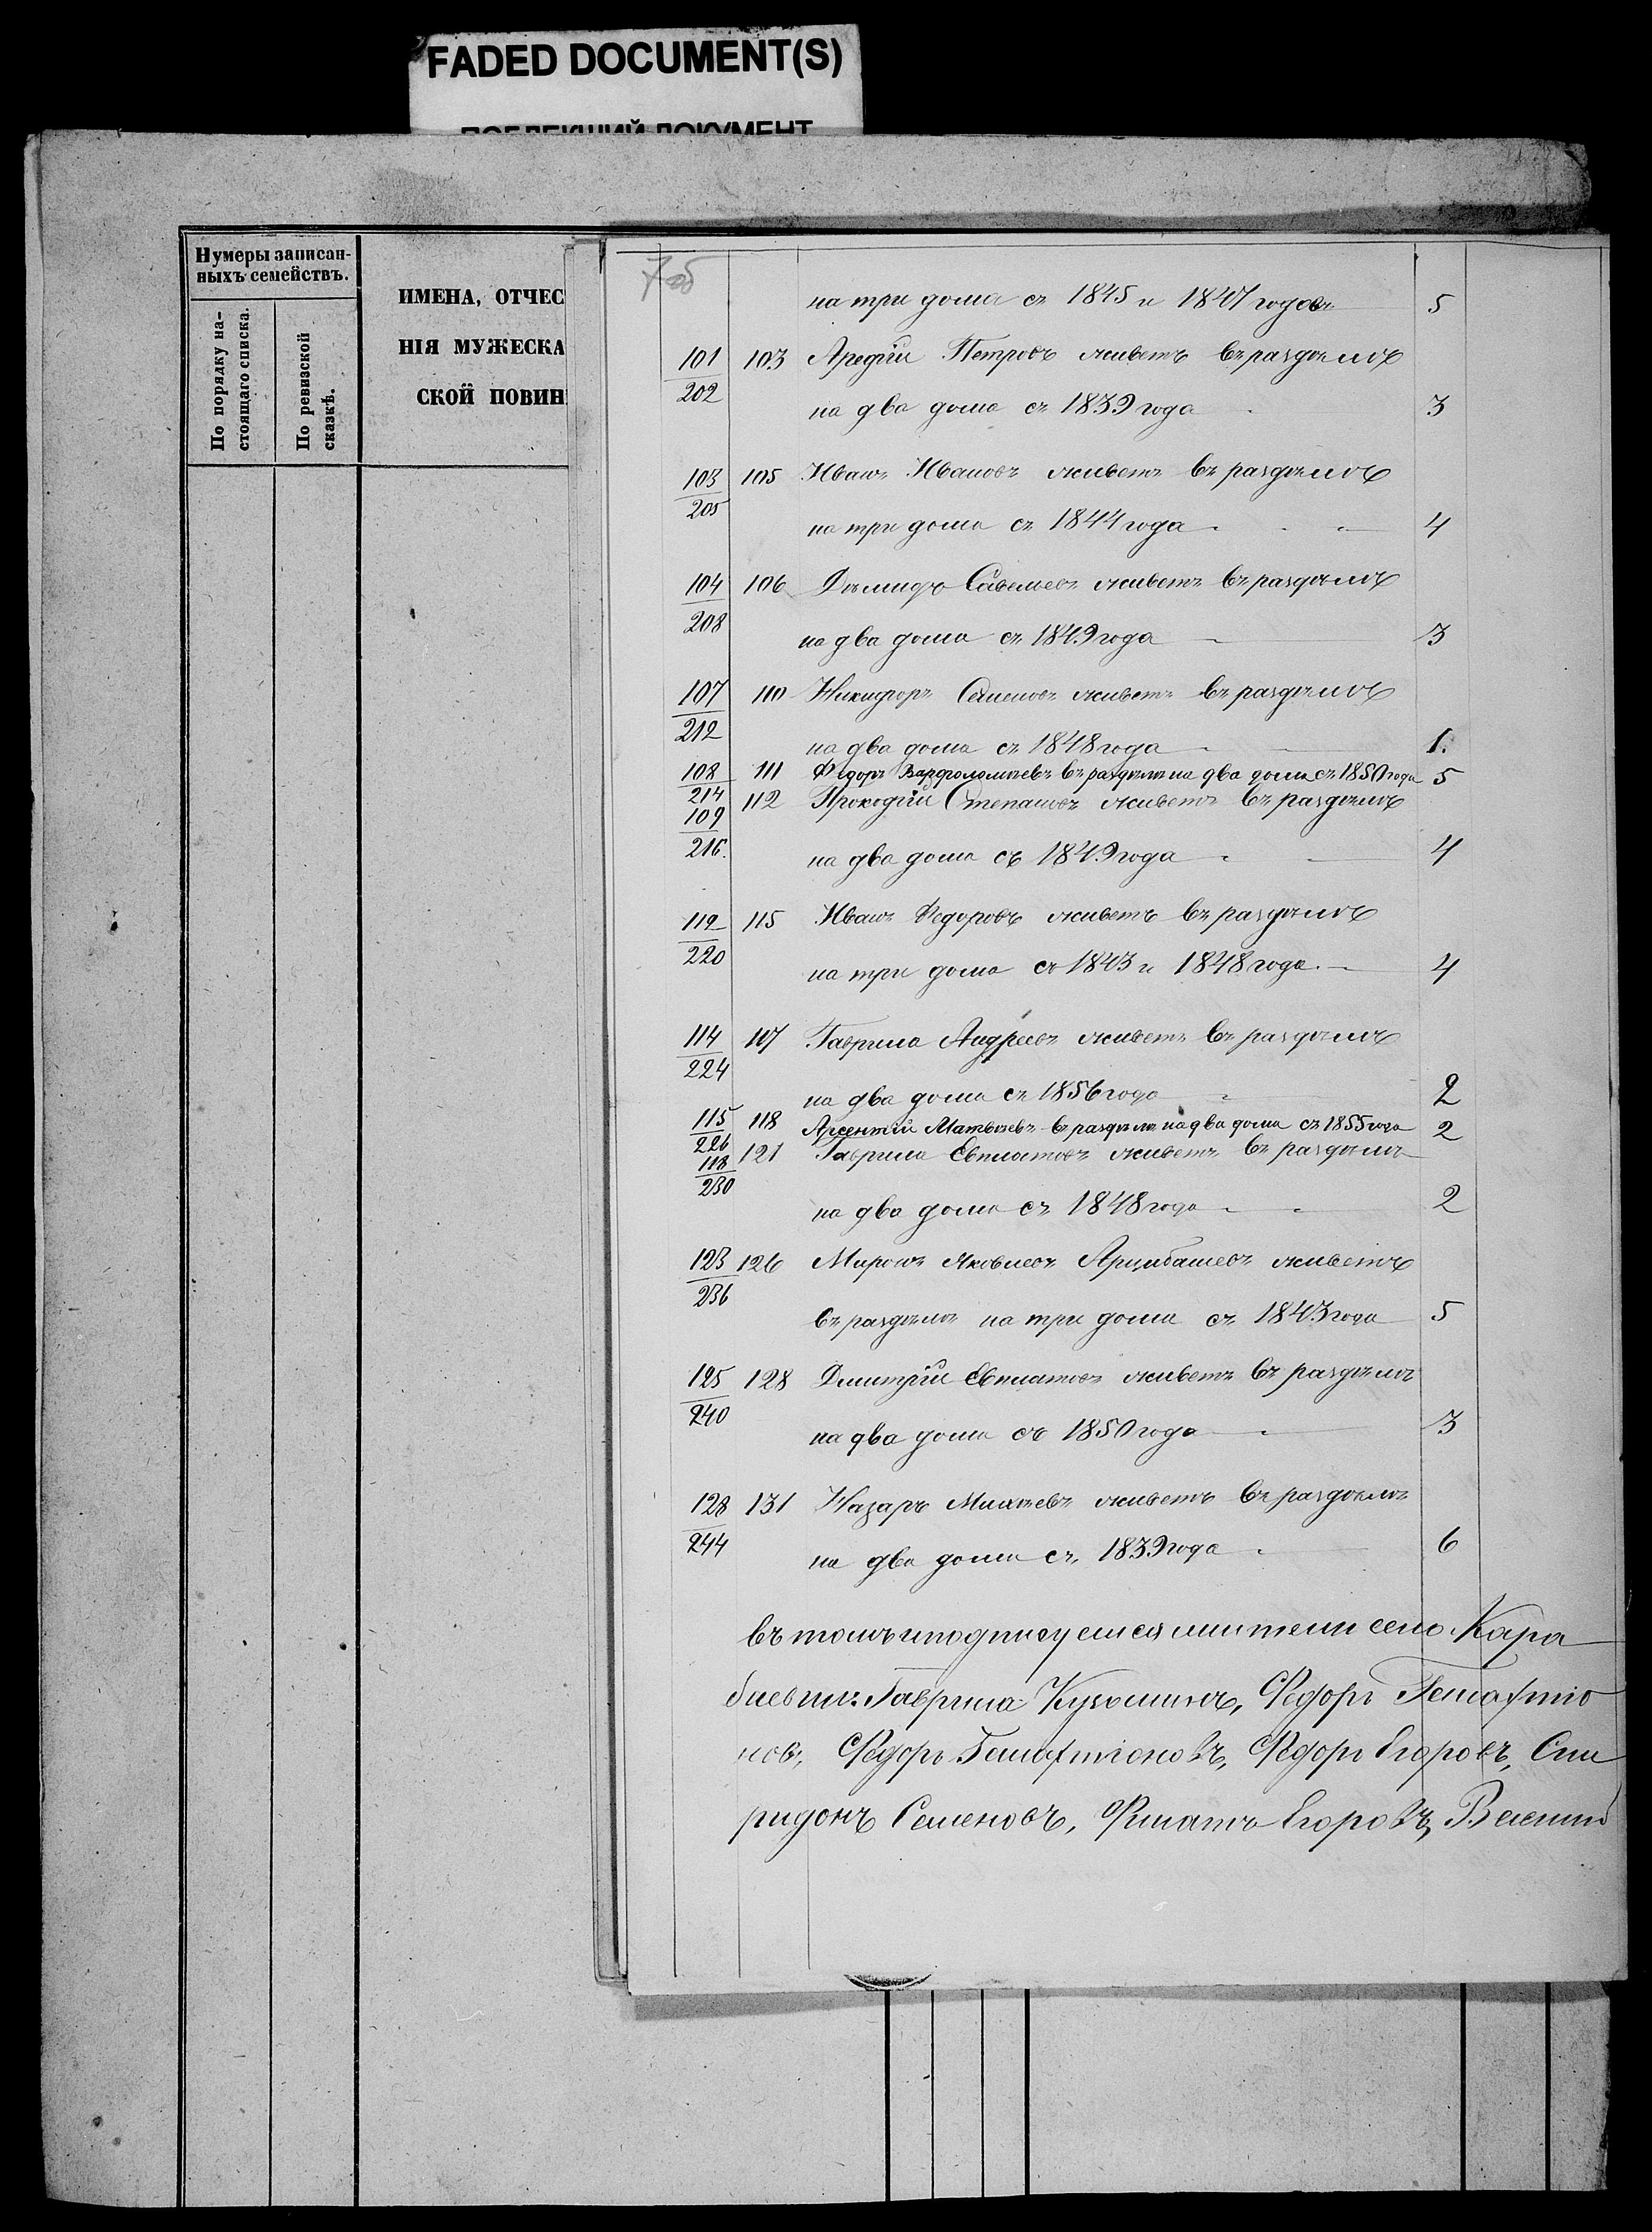 FADED DOCUMENT(S)
ПОБЛЕКШИЙ ДОКУМЕНТ
Нумеры записан-
ныхъ семействъ.
По порядку на-
стоящаго списка.
По ревизской
сказкѣ.
ИМЕНА, ОТЧЕС
НІЯ МУЖЕСКА
СКОЙ ПОВИН
7об
на три дома съ 1845 и 1847 годовъ 5
101 103 Аредій Петровъ живетъ въ раздѣлѣ
202 на два дома съ 1839 года 3
103 105 Иванъ Ивановъ живетъ въ раздѣлѣ
205 на три дома съ 1844 года 4
104 106 Демидъ Савельевъ живетъ въ раздѣлѣ
208 на два дома съ 1849 года 3
107 110 Никифоръ Семеновъ живетъ въ раздѣлѣ
212 на два дома съ 1848 года 1.
108 111 Федоръ Варфоломѣевъ въ раздѣлѣ на два дома съ 1850 года 5
214
109 112 Прокофій Степановъ живетъ въ раздѣлѣ
216. на два дома съ 1849 года 4
112 115 Иванъ Федоровъ живетъ въ раздѣлѣ
220 на три дома съ 1843 и 1848 года. 4
114 117 Гаврила Андреевъ живетъ въ раздѣлѣ
224 на два дома съ 1856 года 2
115 118 Арсентій Матвѣевъ въ раздѣлѣ на два дома съ 1855 года 2
226
118 121 Гаврила Евплатовъ живетъ въ раздѣлѣ
230 на два дома съ 1848 года 2
123 126 Миронъ Яковлевъ Арцибашевъ живетъ
236 въ раздѣлѣ на три дома съ 1843 года 5
125 128 Дмитрій Евплатовъ живетъ въ раздѣлѣ
240 на два дома съ 1850 года 3
128 131 Назаръ Михѣевъ живетъ въ раздѣлѣ
244 на два дома съ 1839 года 6
въ томъ и подписуемся жители села Кара
Гаврила Кузьминъ, Федоръ
новъ, Федоръ Федоръ Егоровъ, Спи
ридонъ Семеновъ, Филатъ Егоровъ,